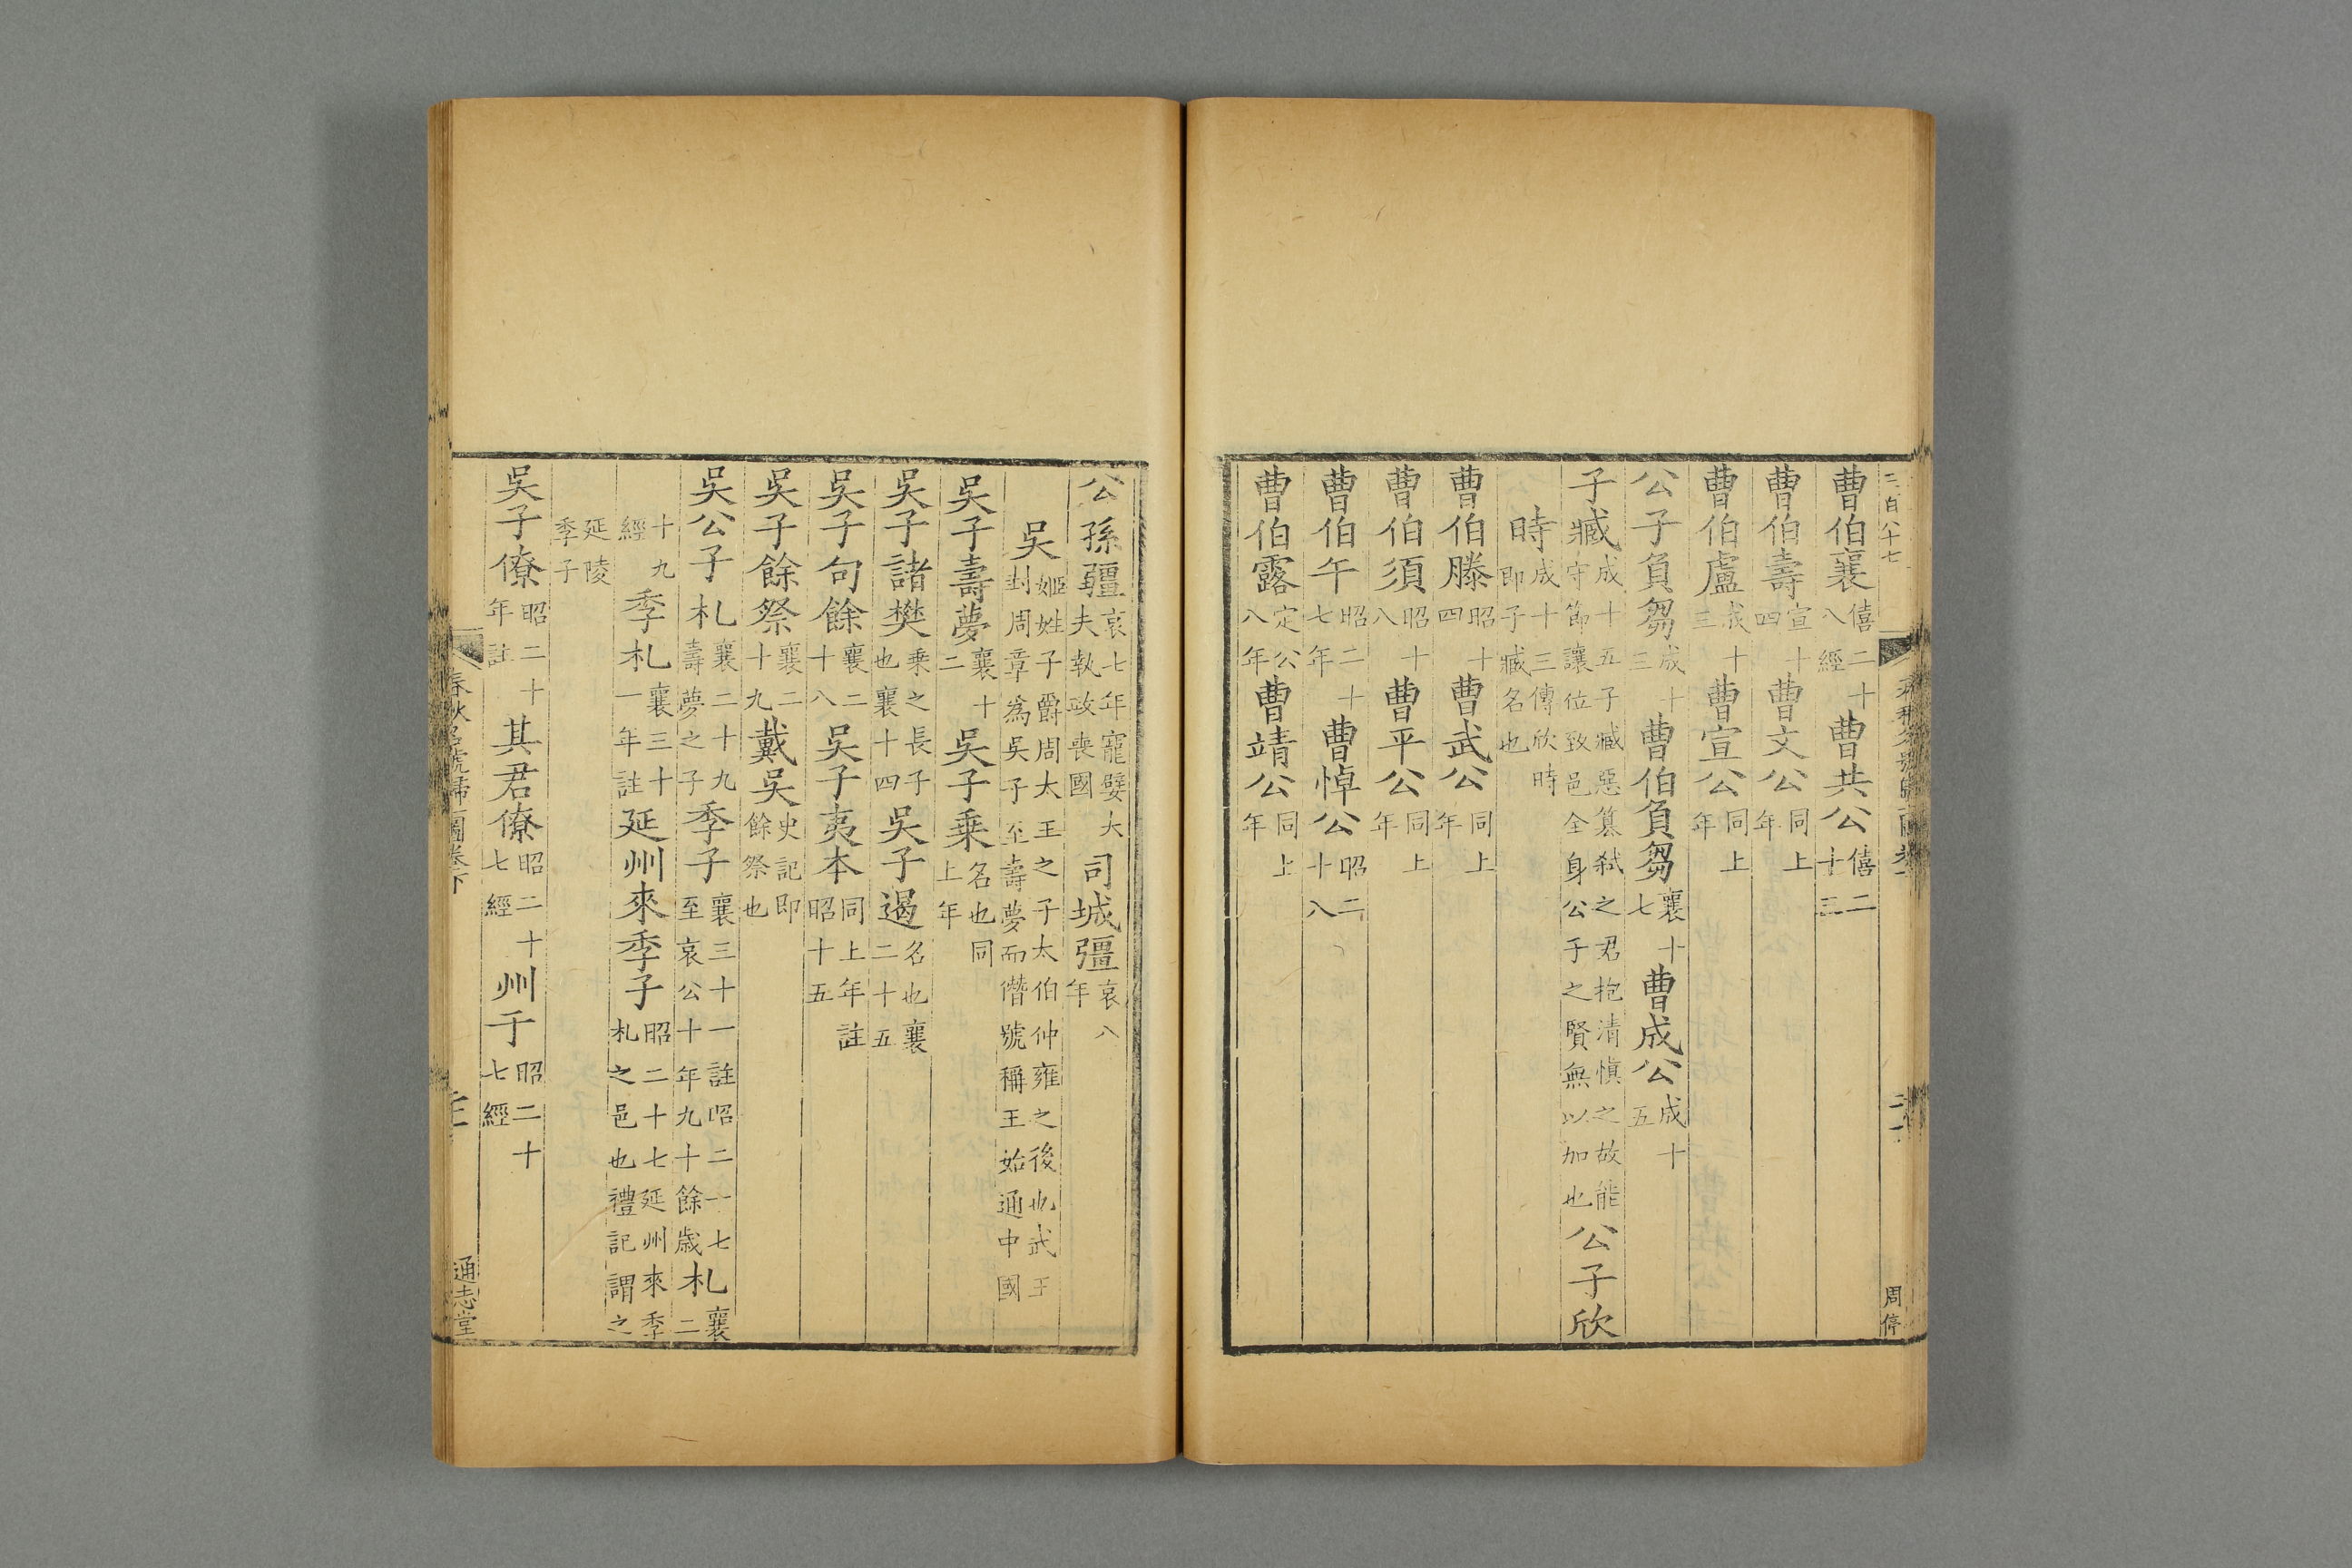 三百八十七
周停
曹伯襄僖二十八經曹共公僖二十三
曹伯壽宣十四曹文公同上年
曹伯盧成十三曹宣公同上年
公子負芻成十三曹伯負芻襄十七曹成公成十五
子臧成十五子臧惡篡弑之君抱清慎之故能守節讓位致邑全身公子之賢無以加也公子欣
時成十三傳欣時即子臧名也
曹伯滕昭十四曹武公同上年
曹伯須昭十八曹平公同上年
曹伯午昭二十七年曹悼公昭二十八
曹伯露定公八年曹靖公同上年
公孫彊哀七年寵嬖大夫執政喪國司城彊哀八年
吳姬姓子爵周太王之子太伯仲雍之後也武王封周章爲吳子至壽夢而僭號稱王始通中國
吳子壽夢襄十二吳子乗名也同上年
吳子諸樊乗之長子也襄十四吳子遏名也襄二十五
吳子句餘襄二十八吳子夷本同上年註昭十五
吳子餘祭襄二十九戴吳史記即餘祭也
吳公子札襄二十九壽夢之子季子襄三十一註昭二十七至哀公十年九十餘歲札襄二
十九經季札襄三十一年註延州來季子昭二十七延州來季札之邑也禮記謂之
延陵季子
吳子僚昭二十年註其君僚昭二十七經州于昭二十七經
春秋名號歸一圖卷下
通志堂